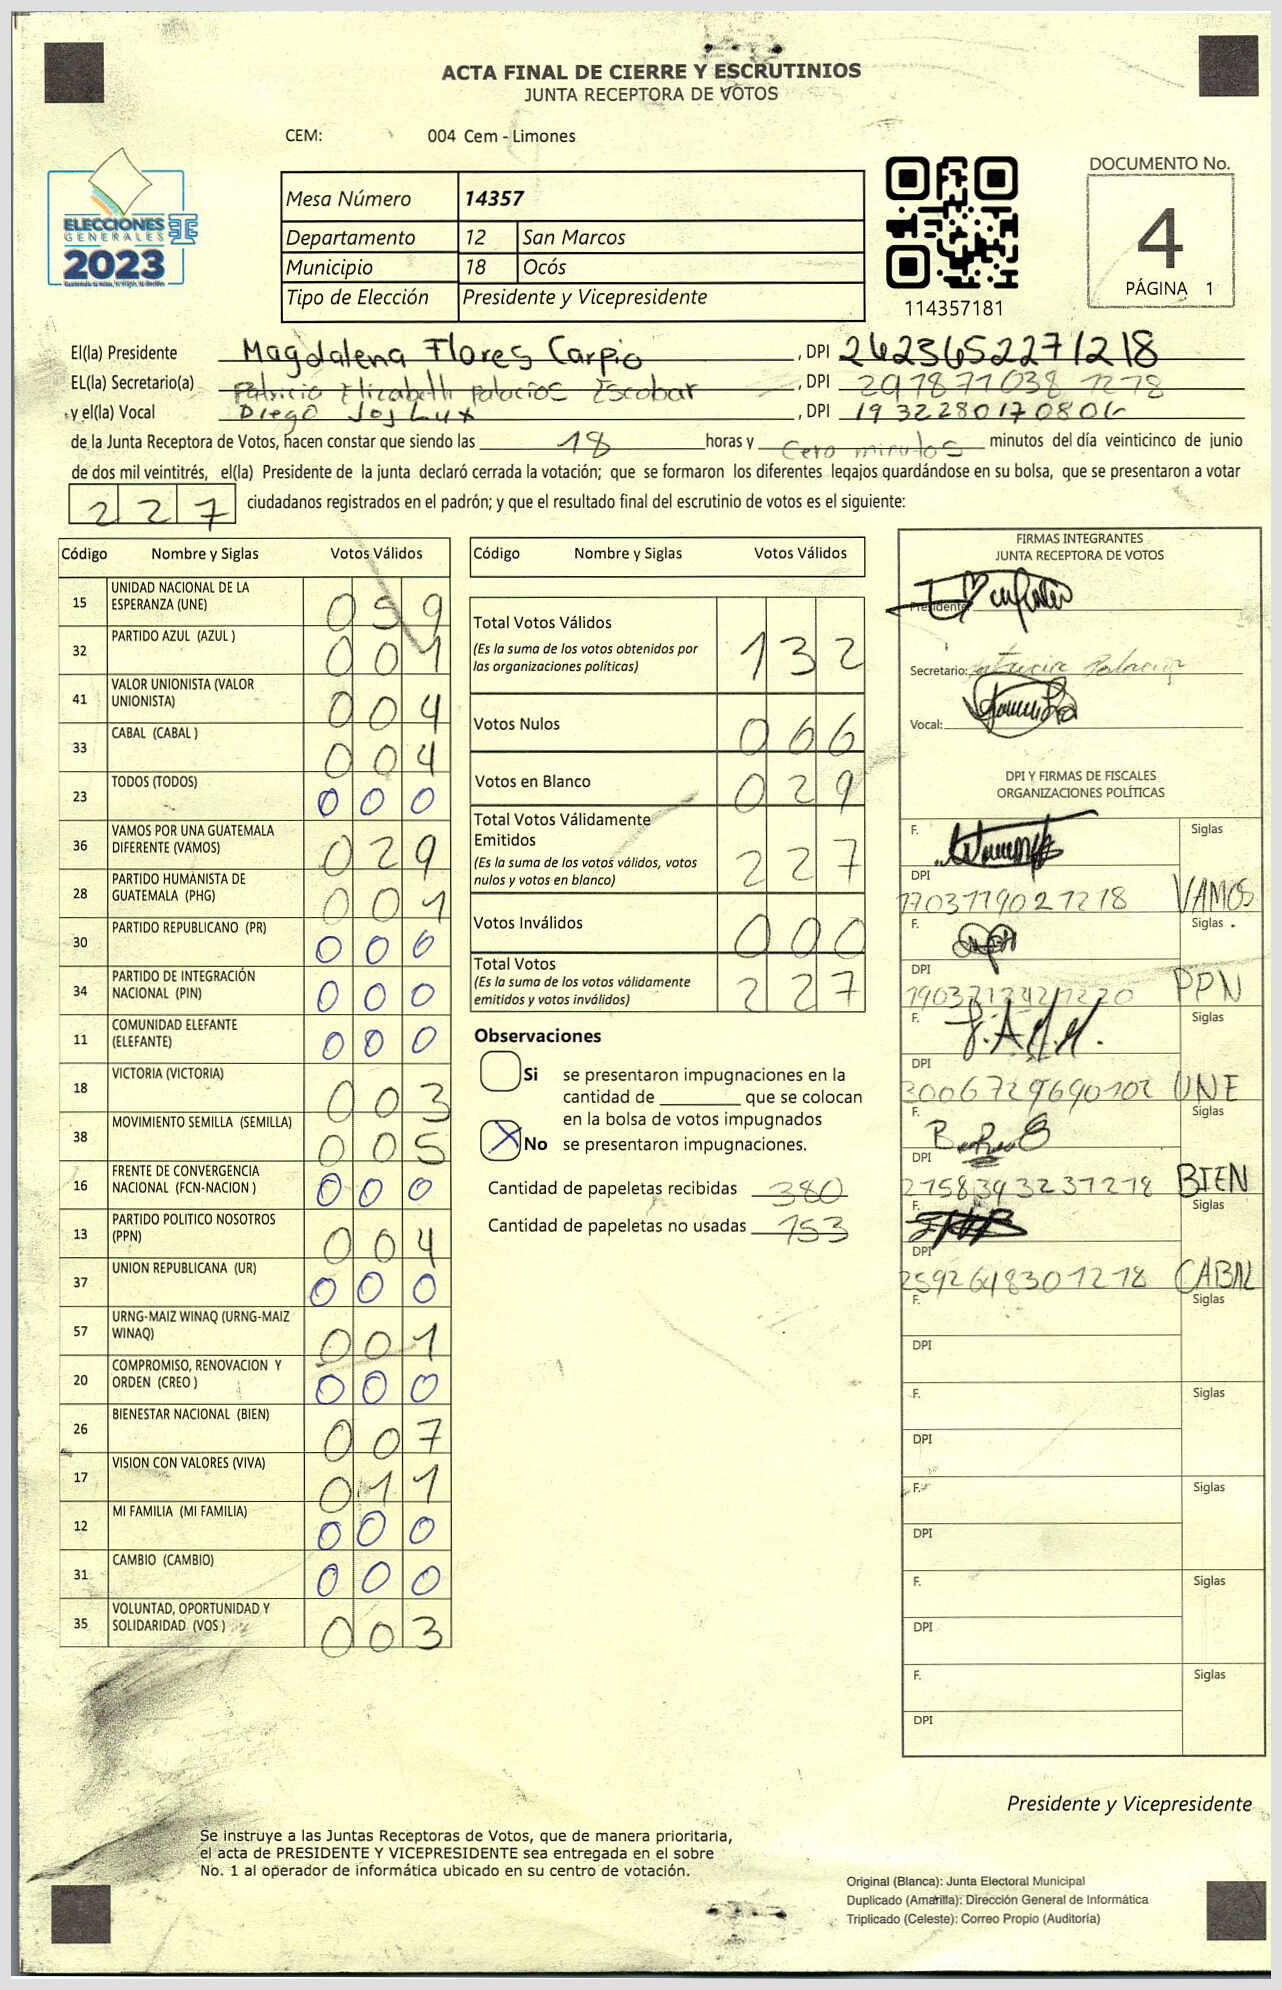 ACTA FINAL DE CIERRE Y ESCRUTINIOS
JUNTA RECEPTORA DE VOTOS
CEM: 004 Cem - Limones
ELECCIONES
GENERALES
2023
Mesa Número 14357
Departamento 12 San Marcos
Municipio 18 Ocós
Tipo de Elección Presidente y Vicepresidente
114357181
DOCUMENTO No.
4
PÁGINA 1
El(la) Presidente Magdalena Flores Carpio , DPI 2423652271218
EL(la) Secretario(a) Patricia Elizabeth Palacios Escobar , DPI 297877038 1218
y el(la) Vocal Diego Joj Lux , DPI 1932280170806
de la Junta Receptora de Votos, hacen constar que siendo las 18 horas y Cero minutos minutos del día veinticinco de junio
de dos mil veintitrés, el(la) Presidente de la junta declaró cerrada la votación; que se formaron los diferentes legajos guardándose en su bolsa, que se presentaron a votar
227 ciudadanos registrados en el padrón; y que el resultado final del escrutinio de votos es el siguiente:
Código Nombre y Siglas Votos Válidos
15 UNIDAD NACIONAL DE LA ESPERANZA (UNE) 059
32 PARTIDO AZUL (AZUL ) 001
41 VALOR UNIONISTA (VALOR UNIONISTA) 004
33 CABAL (CABAL ) 004
23 TODOS (TODOS) 000
36 VAMOS POR UNA GUATEMALA DIFERENTE (VAMOS) 029
28 PARTIDO HUMANISTA DE GUATEMALA (PHG) 001
30 PARTIDO REPUBLICANO (PR) 000
34 PARTIDO DE INTEGRACIÓN NACIONAL (PIN) 000
11 COMUNIDAD ELEFANTE (ELEFANTE) 000
18 VICTORIA (VICTORIA) 003
38 MOVIMIENTO SEMILLA (SEMILLA) 005
16 FRENTE DE CONVERGENCIA NACIONAL (FCN-NACION ) 000
13 PARTIDO POLITICO NOSOTROS (PPN) 004
37 UNION REPUBLICANA (UR) 000
57 URNG-MAIZ WINAQ (URNG-MAIZ WINAQ) 001
20 COMPROMISO, RENOVACION Y ORDEN (CREO ) 000
26 BIENESTAR NACIONAL (BIEN) 007
17 VISION CON VALORES (VIVA) 011
12 MI FAMILIA (MI FAMILIA) 000
31 CAMBIO (CAMBIO) 000
35 VOLUNTAD, OPORTUNIDAD Y SOLIDARIDAD (VOS ) 003
Código Nombre y Siglas Votos Válidos
Total Votos Válidos 132
(Es la suma de los votos obtenidos por
las organizaciones políticas)
Votos Nulos 066
Votos en Blanco 029
Total Votos Válidamente
Emitidos 227
(Es la suma de los votos válidos, votos
nulos y votos en blanco)
Votos Inválidos 000
Total Votos 227
(Es la suma de los votos válidamente
emitidos y votos inválidos)
Observaciones
Si se presentaron impugnaciones en la
cantidad de ________ que se colocan
en la bolsa de votos impugnados
X No se presentaron impugnaciones.
Cantidad de papeletas recibidas 380
Cantidad de papeletas no usadas 153
FIRMAS INTEGRANTES
JUNTA RECEPTORA DE VOTOS
Presidente:
Secretario: Patricia Palacios
Vocal:
DPI Y FIRMAS DE FISCALES
ORGANIZACIONES POLÍTICAS
F. Siglas
DPI
1703779021218 VAMOS
F. Siglas
DPI
PPN
F. Siglas
DPI
3006729690102 UNE
F. Siglas
DPI
2758393231218 BIEN
F. Siglas
DPI
2592648301218 CABAL
F. Siglas
DPI
F. Siglas
DPI
F. Siglas
DPI
F. Siglas
DPI
F. Siglas
DPI
Presidente y Vicepresidente
Se instruye a las Juntas Receptoras de Votos, que de manera prioritaria,
el acta de PRESIDENTE Y VICEPRESIDENTE sea entregada en el sobre
No. 1 al operador de informática ubicado en su centro de votación.
Original (Blanca): Junta Electoral Municipal
Duplicado (Amarilla): Dirección General de Informática
Triplicado (Celeste): Correo Propio (Auditoría)